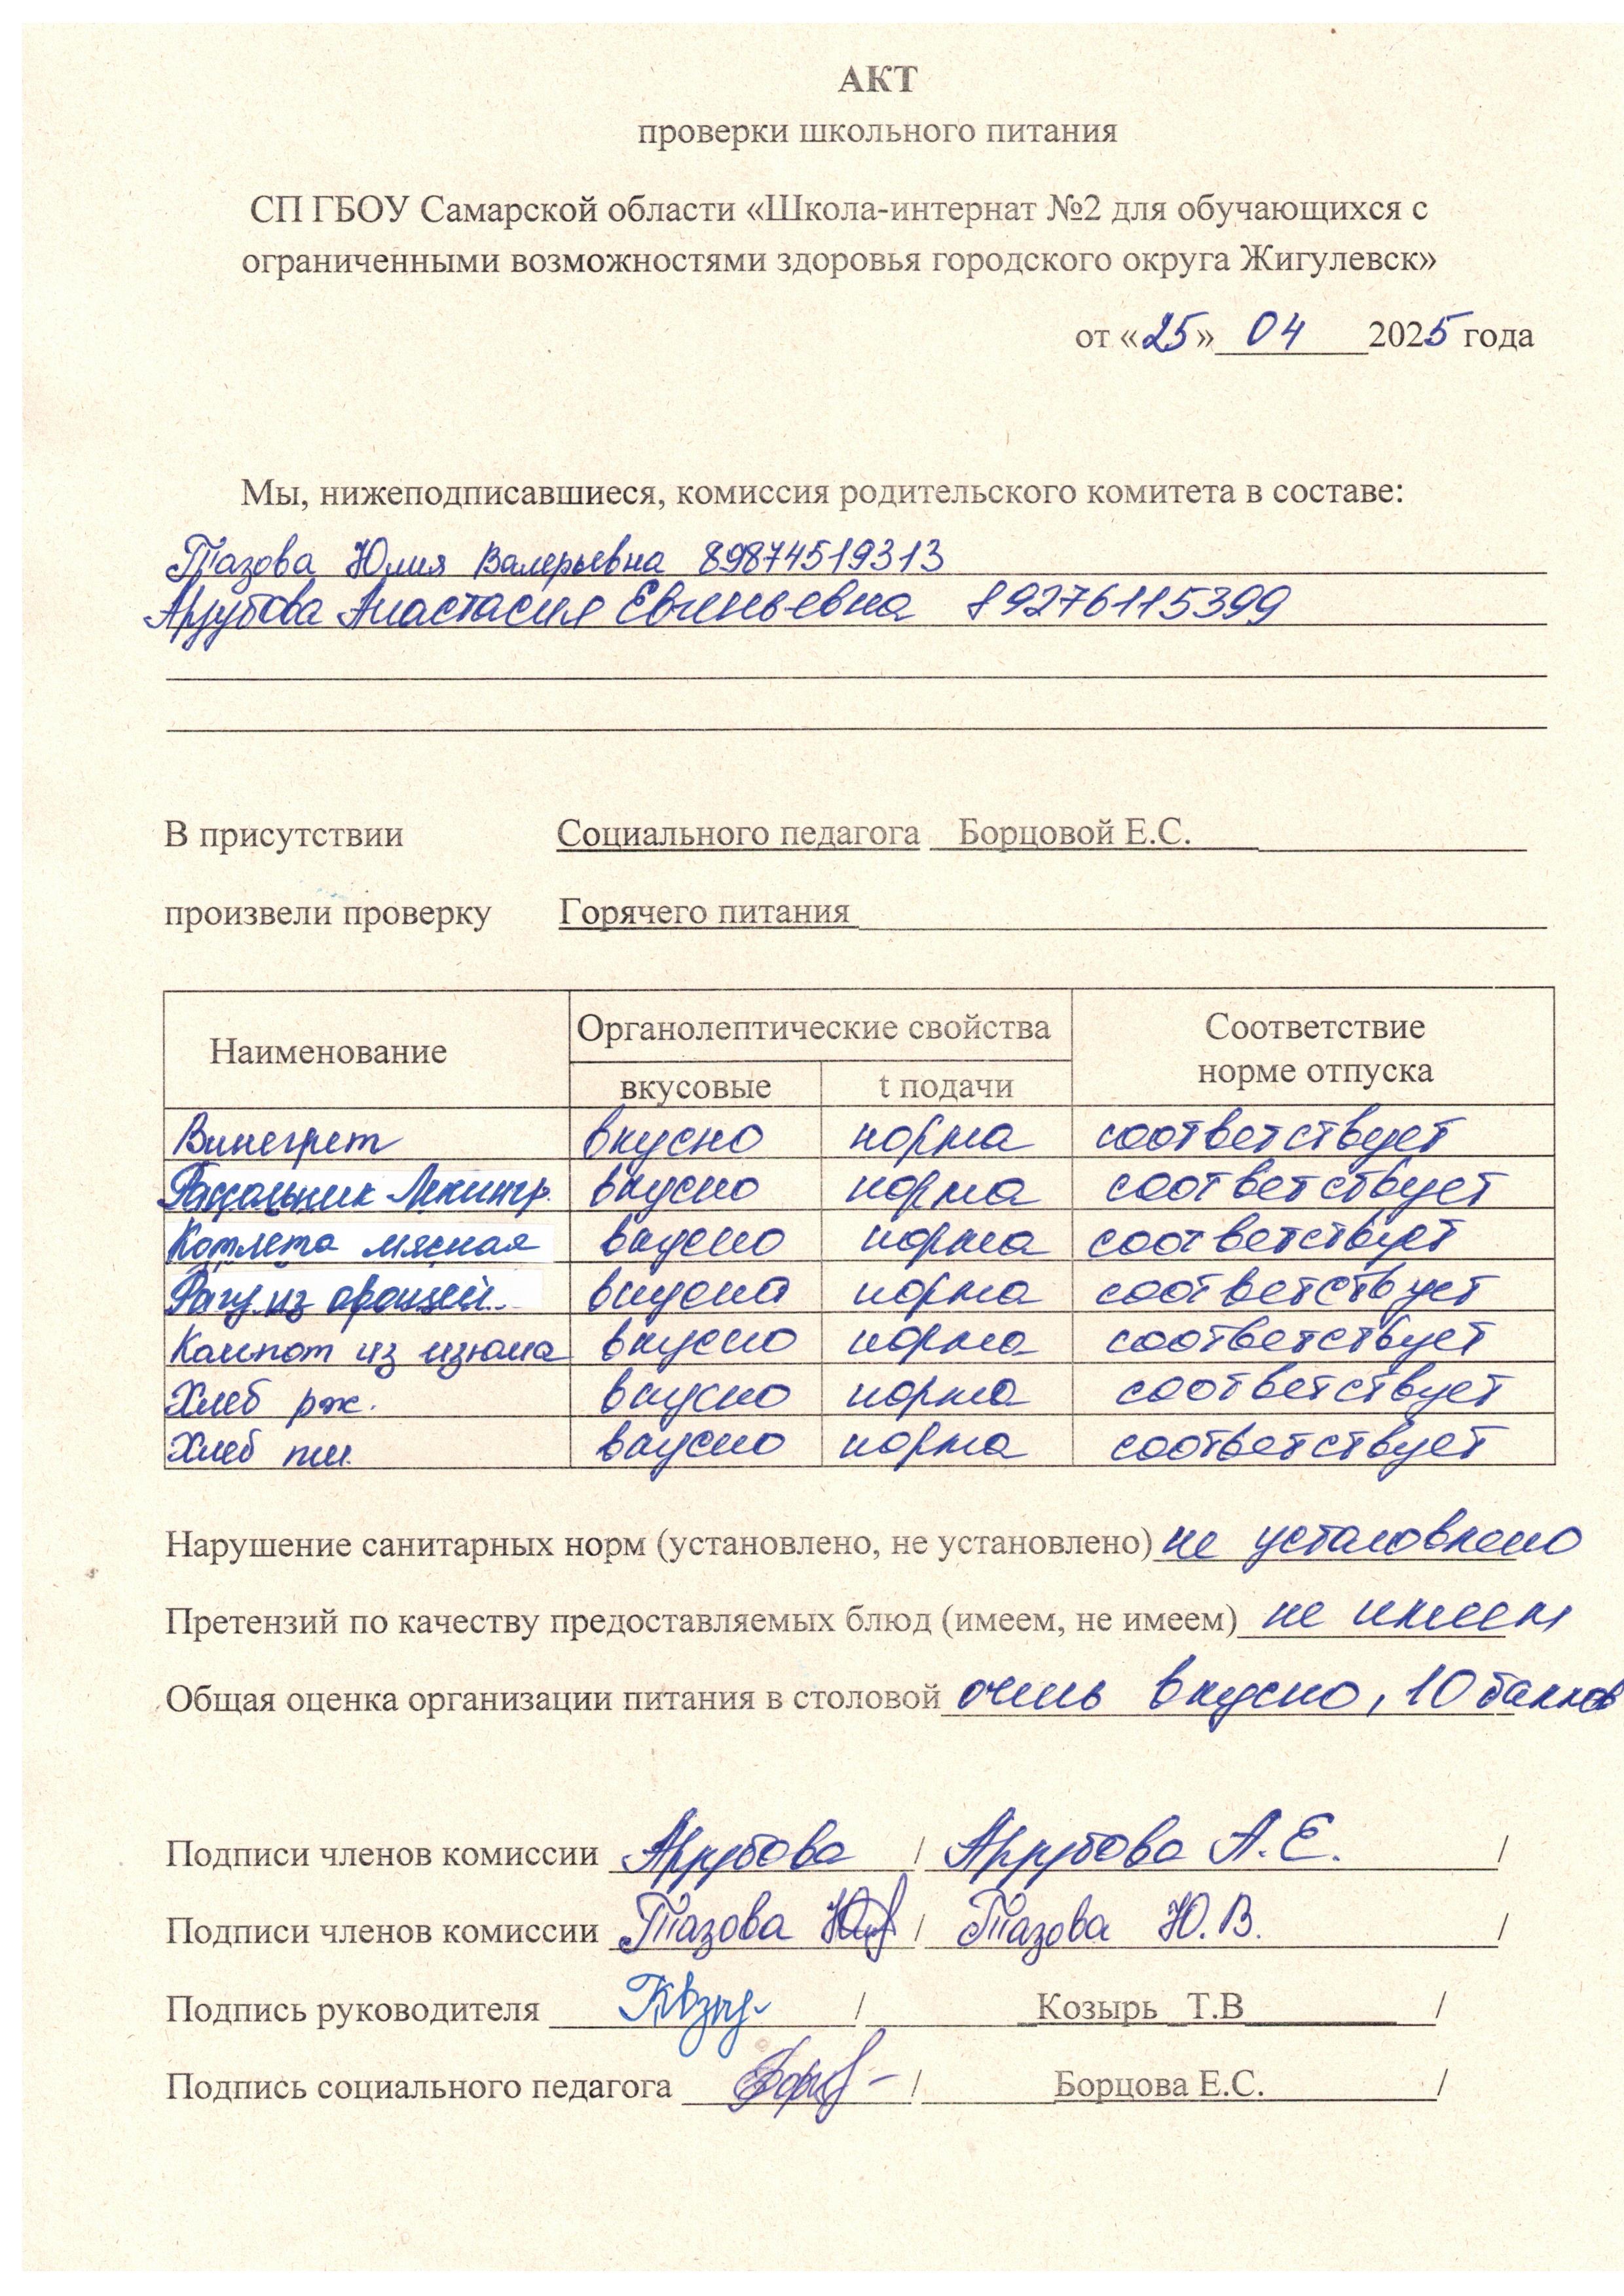 АКТ
проверки школьного питания
СП ГБОУ Самарской области «Школа-интернат №2 для обучающихся с
ограниченными возможностями здоровья городского округа Жигулевск»
от «25» 04 2025 года
Мы, нижеподписавшиеся, комиссия родительского комитета в составе:
Тазова Юлия Валерьевна 89874519313
Анастасия Евгеньевна 89276115399
В присутствии Социального педагога Борцовой Е.С.
произвели проверку Горячего питания
Наименование Органолептические свойства Соответствие
норме отпуска
вкусовые t подачи
Винегрет вкусно норма соответствует
Рассольник Ленингр. вкусно норма соответствует
Котлета мясная вкусно норма соответствует
Рагу из овощей вкусно норма соответствует
Компот из изюма вкусно норма соответствует
Хлеб рж. вкусно норма соответствует
Хлеб пш. вкусно норма соответствует
Нарушение санитарных норм (установлено, не установлено) не установлено
Претензий по качеству предоставляемых блюд (имеем, не имеем) не имеем
Общая оценка организации питания в столовой очень вкусно, 10 баллов
Подписи членов комиссии / А.Е. /
Подписи членов комиссии Тазова / Тазова Ю.В. /
Подпись руководителя / Козырь Т.В /
Подпись социального педагога / Борцова Е.С. /